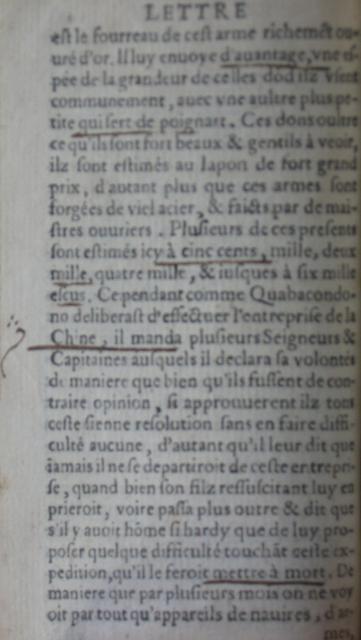 LETTRE
est le fourreau de cest arme richemẽt ou-
uré d'or. Il luy enuoye d'auantage, vne es-
pée de la grandeur de celles dõd ilz vsent
communement, auec vne aultre plus pe-
tite qui sert de poignart. Ces dons oultre
ce qu'ils sont fort beaux & gentils à veoir,
ilz sont estimés au Iapon de fort grand
prix, d'autant plus que ces armes sont
forgées de viel acier, & faicts par de mai-
stres ouuriers. Plusieurs de ces presents
sont estimés icy à cinc cents, mille, deux
mille, quatre mille, & iusques à six mille
escus. Cependant comme Quabacondo-
no deliberast d'effectuer l'entreprise de la
Chine, il manda plusieurs Seigneurs &
Capitaines ausquels il declara sa volonté
de maniere que bien qu'ils fussent de con-
traire opinion, si approuuerent ilz tous
ceste sienne resolution sans en faire diffi-
culté aucune, d'autant qu'il leur dit que
iamais il ne se departiroit de ceste entrepri-
se, quand bien son filz ressuscitant luy en
prieroit, voire passa plus outre & dit que
s'il y auoit hõme si hardy que de luy pro-
poser quelque difficulté touchãt ceste ex-
pedition, qu'il le feroit mettre à mort. De
maniere que par plusieurs mois on ne voy
oit par tout qu'appareils de nauires, d'ar-